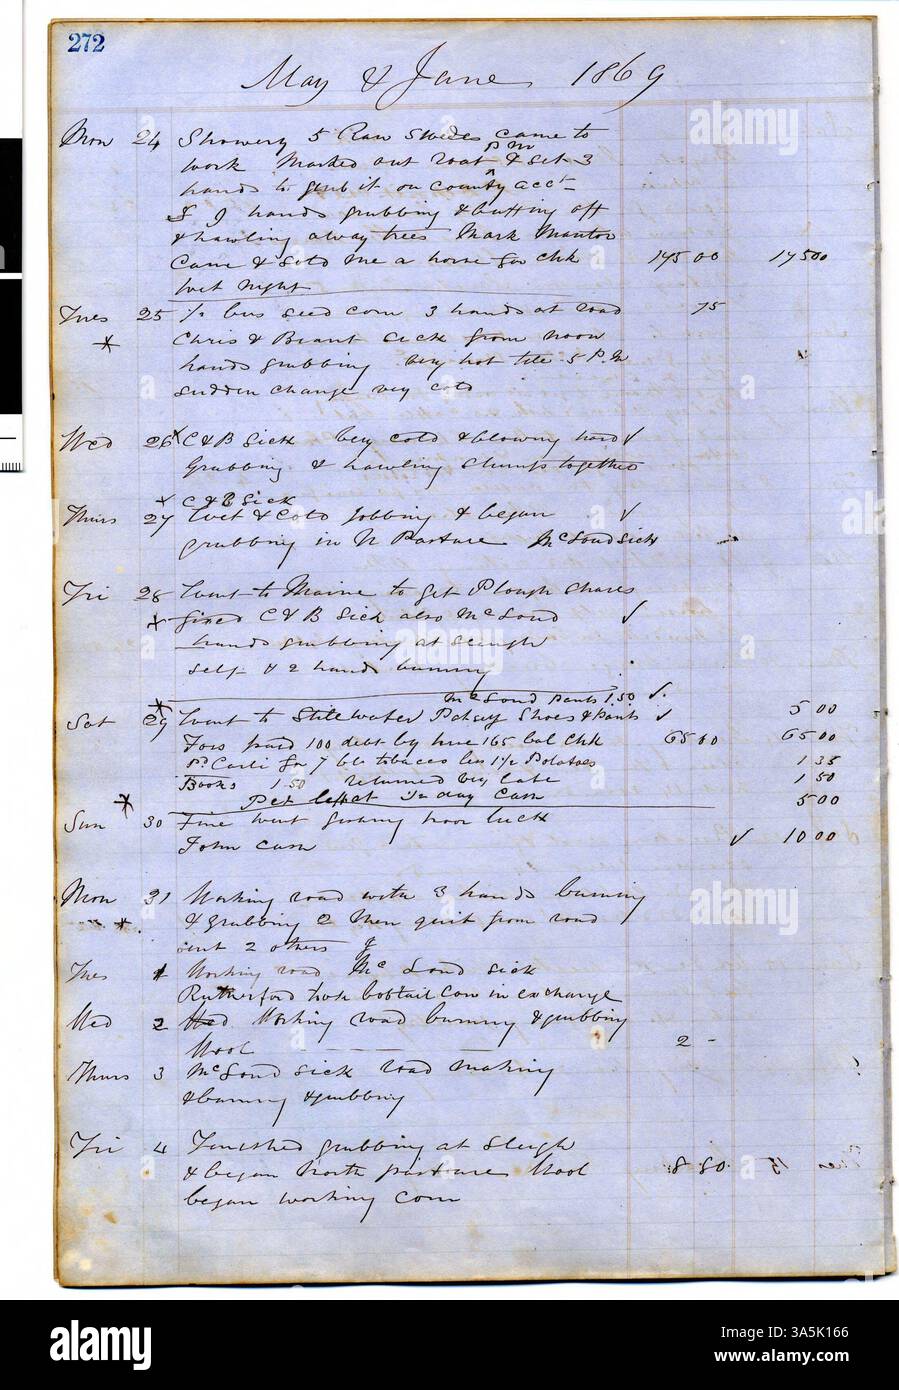 272
May & June 1869
Mon 24 Showery 5 Raw Swedes came to
P M
work Marked out road & set 3
hands to grub it on county acct
9 hands grubbing & butting off
& hawling away trees Mark Manter
Came & sold me a horse for chk 175 00 175 00
wet night
Tues 25 ½ bus seed corn 3 hands at road 75
Chris & Brant sick from noon
hands grubbing very hot till 5 P.M
sudden change very cold
Wed 26 C & B sick very cold & blowing hard
Grubbing & hawling stumps together
C & B sick
Thurs 27 Wet & cold Jobbing & began
grubbing in N Pasture McLoud sick
Fri 28 Went to Marine to get Plough Shares
fixed C & B Sick also McLoud
hands grubbing at sleugh
self & 2 hands burning
McLoud pants 1.50
Sat 29 Went to Stillwater Patsey Shoes & pants 5 00
paid 100 debt by hue 165 bal Chk 65 00 65 00
for 7 lb tobacco less 1½ Potatoes 1 35
Books 1.50 returned very late 1 50
Pet ½ day Cash 5 00
Sun 30 Fine went fishing poor luck
John Cash 10 00
Mon 31 Working road with 3 hands burning
& grubbing 2 Men quit from road
2 others
Tues 1 Working road McLoud sick
Rutherford took bobtail Cow in exchange
Wed 2 Working road burning & grubbing
Wool 2 -
Thurs 3 McLoud sick road making
& burning & grubbing
Fri 4 Finished grubbing at Sleigh
& began North pasture Wool 8 80
began working corn
alamy
alamy
Image ID: 3A5K166
www.alamy.com